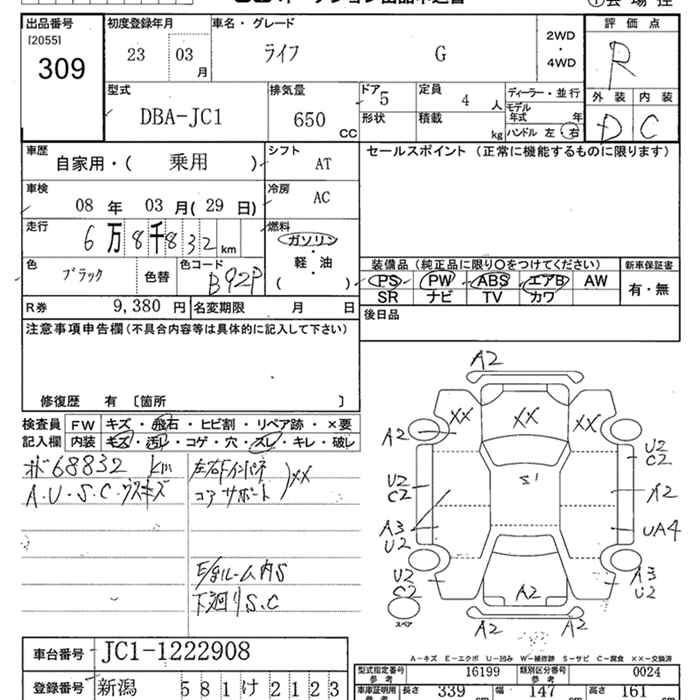 オークション出品申込書
出品番号
[2055]
309
初度登録年月
23 03 月
車名・グレード
ライフ G
2WD
・
4WD
評価点
R
外装 内装
D C
型式
DBA-JC1
排気量
650 CC
ドア 5
定員 4 人
形状
積載 kg
ディーラー・並行
モデル年式 年
ハンドル 左 右
車歴
自家用・( 乗用 )
シフト
AT
車検
08 年 03 月 (29 日)
冷房
AC
走行
6万8千832 km
燃料
ガソリン
軽・油
( )
色
ブラック
色替
色コード
B92P
R券 9,380 円
名変期限 月 日
セールスポイント (正常に機能するものに限ります)
装備品 (純正品に限り○をつけてください)
PS PW ABS エアB AW
SR ナビ TV カワ
新車保証書
有・無
後日品
注意事項申告欄(不具合内容等は具体的に記入して下さい)
修復歴 有 〔箇所 〕
検査員記入欄
FW キズ・飛石・ヒビ割・リペア跡・×要
内装 キズ・汚レ・コゲ・穴・スレ・キレ・破レ
68832 km
A.U.S.C.
左右Fインパネ
コアサポート
)××
E/gルーム内S
下廻りS.C
A2
××
××
××
A2
S1
U2
C2
U2
C2
A2
A3
U2
UA4
U2
C2
A3
U2
A2
A2
A2
スペア
A-キズ E-エクボ U-凹み W-補修跡 S-サビ C-腐食 ××-交換済
車台番号 JC1-1222908
登録番号 新潟 581 け 2123
型式指定番号 参考 16199
類別区分番号 参考 0024
車庫証明用 参考 長さ 339 幅 147 高さ 161